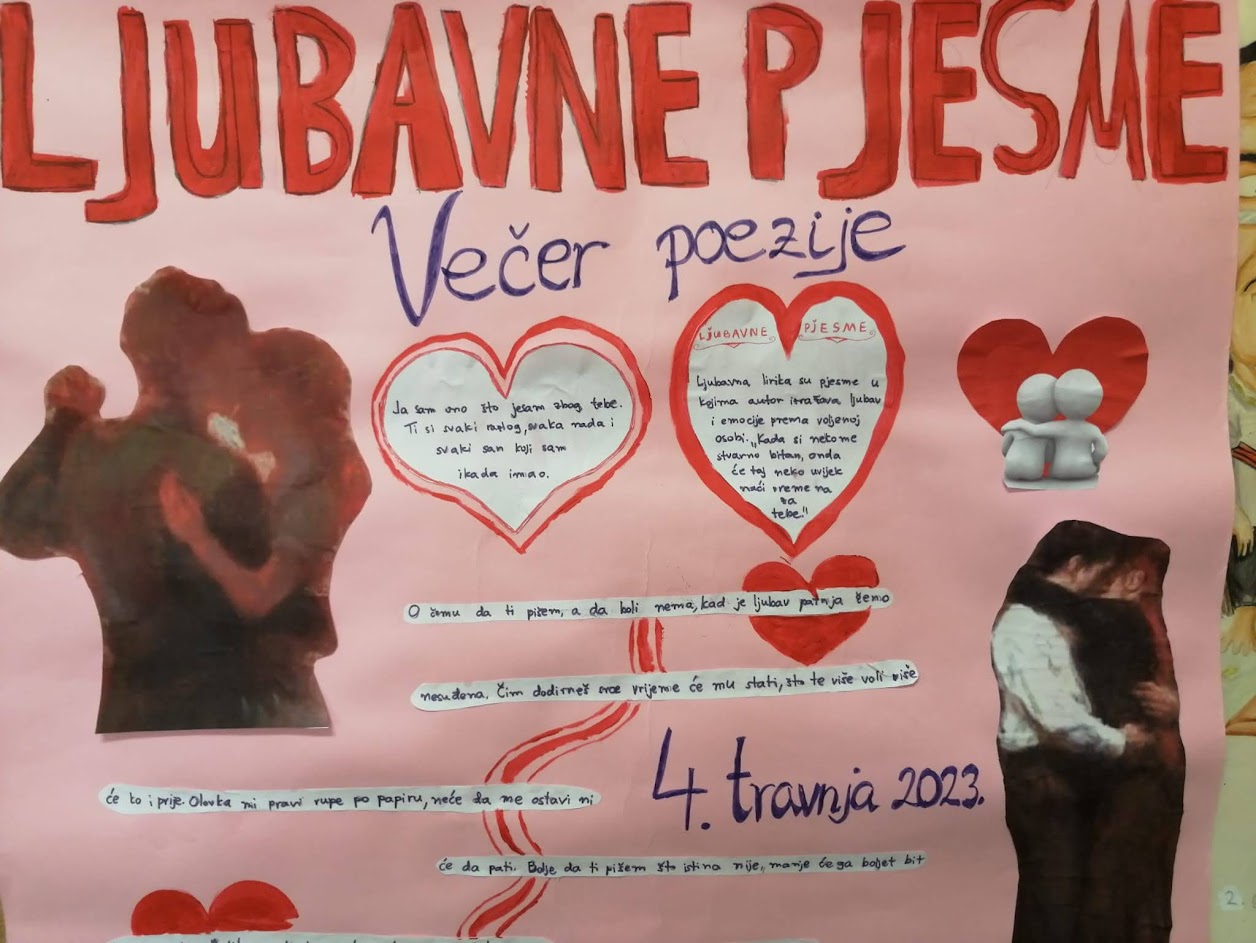 LJUBAVNE PJESME
Večer poezije
Ja sam ono što jesam zbog tebe.
Ti si svaki razlog, svaka nada i
svaki san koji sam
ikada imao.
LJUBAVNE PJESME
Ljubavna lirika su pjesme u
kojima autor izražava ljubav
i emocije prema voljenoj
osobi. „Kada si nekome
stvarno bitan, onda
će taj neko uvijek
naći vreme na
za
tebe."
O čemu da ti pišem, a da boli nema, kad je ljubav patnja
nesuđena. Čim dodirneš srce vrijeme će mu stati, što te više voli više
će to i prije. Olovka mi pravi rupe po papiru, neće da me ostavi ni
4. travnja 2023.
će da pati. Bolje da ti pišem što istina nije, manje će ga boljet bit
2.